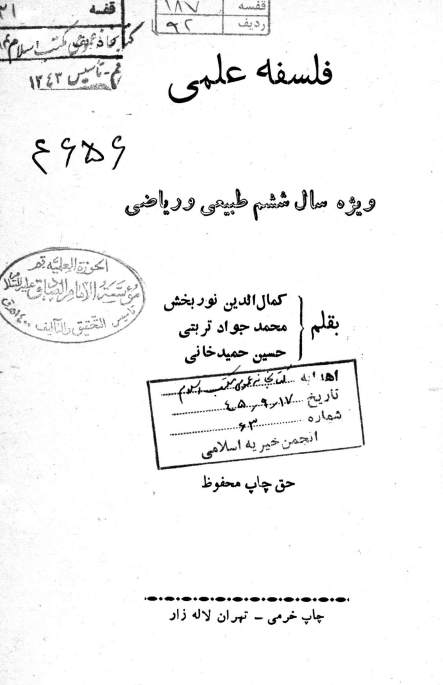 قفسه ۱۸۷
ردیف ۹۲
قفسه ۲۱
کتابخانه عمومی مکتب اسلام
قم - تأسیس ۱۳۴۳
فلسفه علمی
۶۶۵۶
ویژه سال ششم طبیعی و ریاضی
الحوزة العلمیة قم
مؤسسة الامام الصادق علیه السلام
تأسیس التحقیق والتألیف
بقلم
کمال‌الدین نوربخش
محمد جواد تربتی
حسین حمیدخانی
اهدا به کتابخانه عمومی مکتب اسلام
تاریخ ۴۵٫۹٫۱۷
شماره ۶۳
انجمن خیریه اسلامی
حق چاپ محفوظ
چاپ خرمی - تهران لاله زار